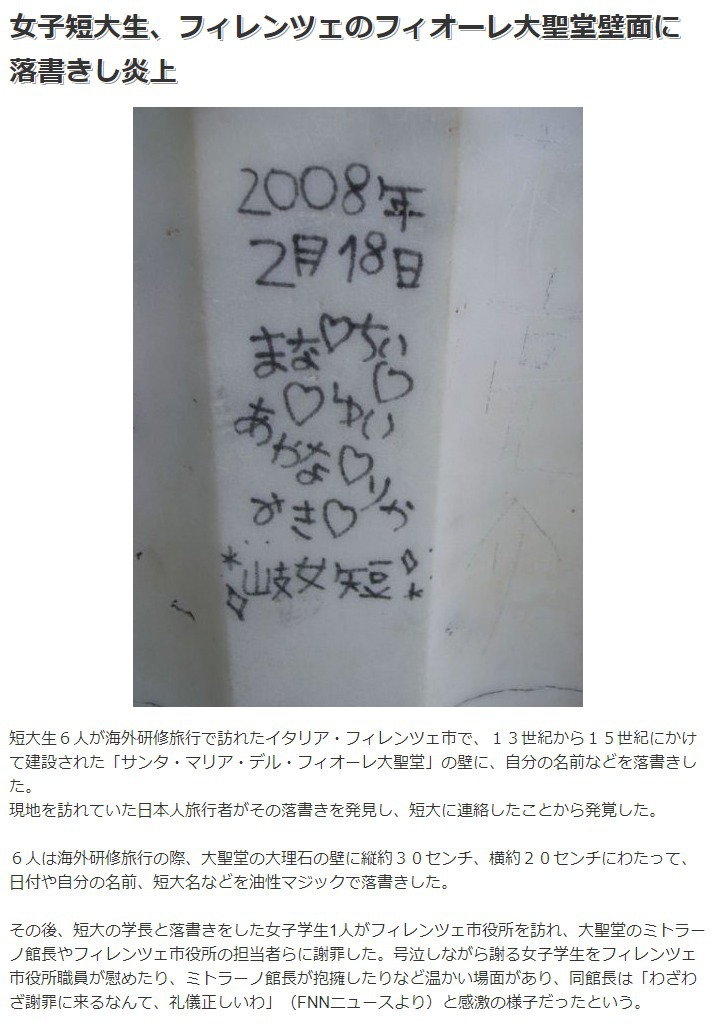 女子短大生、フィレンツェのフィオーレ大聖堂壁面に
落書きし炎上
2008年
2月18日
まな♡ちい
♡
あ♡ゆい
かな♡りか
みき♡
*岐女短*
短大生６人が海外研修旅行で訪れたイタリア・フィレンツェ市で、１３世紀から１５世紀にかけ
て建設された「サンタ・マリア・デル・フィオーレ大聖堂」の壁に、自分の名前などを落書きし
た。
現地を訪れていた日本人旅行者がその落書きを発見し、短大に連絡したことから発覚した。
６人は海外研修旅行の際、大聖堂の大理石の壁に縦約３０センチ、横約２０センチにわたって、
日付や自分の名前、短大名などを油性マジックで落書きした。
その後、短大の学長と落書きをした女子学生1人がフィレンツェ市役所を訪れ、大聖堂のミトラー
ノ館長やフィレンツェ市役所の担当者らに謝罪した。号泣しながら謝る女子学生をフィレンツェ
市役所職員が慰めたり、ミトラーノ館長が抱擁したりなど温かい場面があり、同館長は「わざわ
ざ謝罪に来るなんて、礼儀正しいわ」（FNNニュースより）と感激の様子だったという。